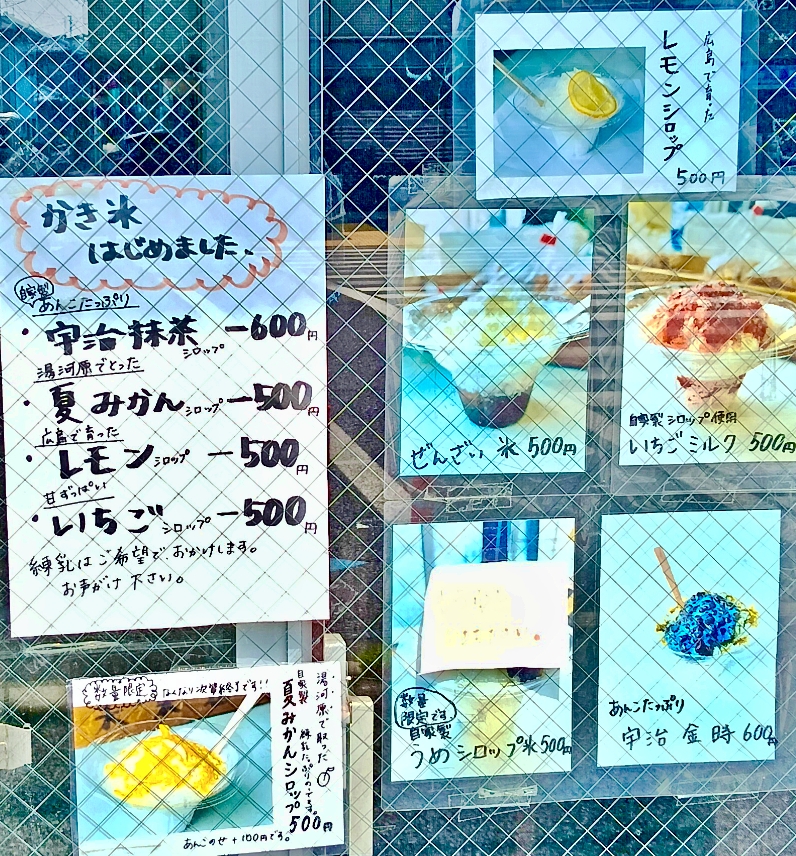 かき氷
はじめました、
自家製
あんこたっぷり
・宇治抹茶シロップ ー600円
湯河原でとった
・夏みかんシロップー500円
広島で育った
・レモンシロップ ー500円
甘ずっぱい
・いちごシロップー500円
練乳はご希望でおかけします。
お声がけ下さい。
広島で育った
レモンシロップ
500円
ぜんざい氷 500円
自家製シロップ使用
いちごミルク 500円
数量
限定です
自家製
うめシロップ氷500円
あんこたっぷり
宇治金時600円
数量限定 なくなり次第終了です!!
湯河原で取った
自家製
夏みかんシロップ
練乳たっぷりのってます。
500円
あんこのせ+100円です。